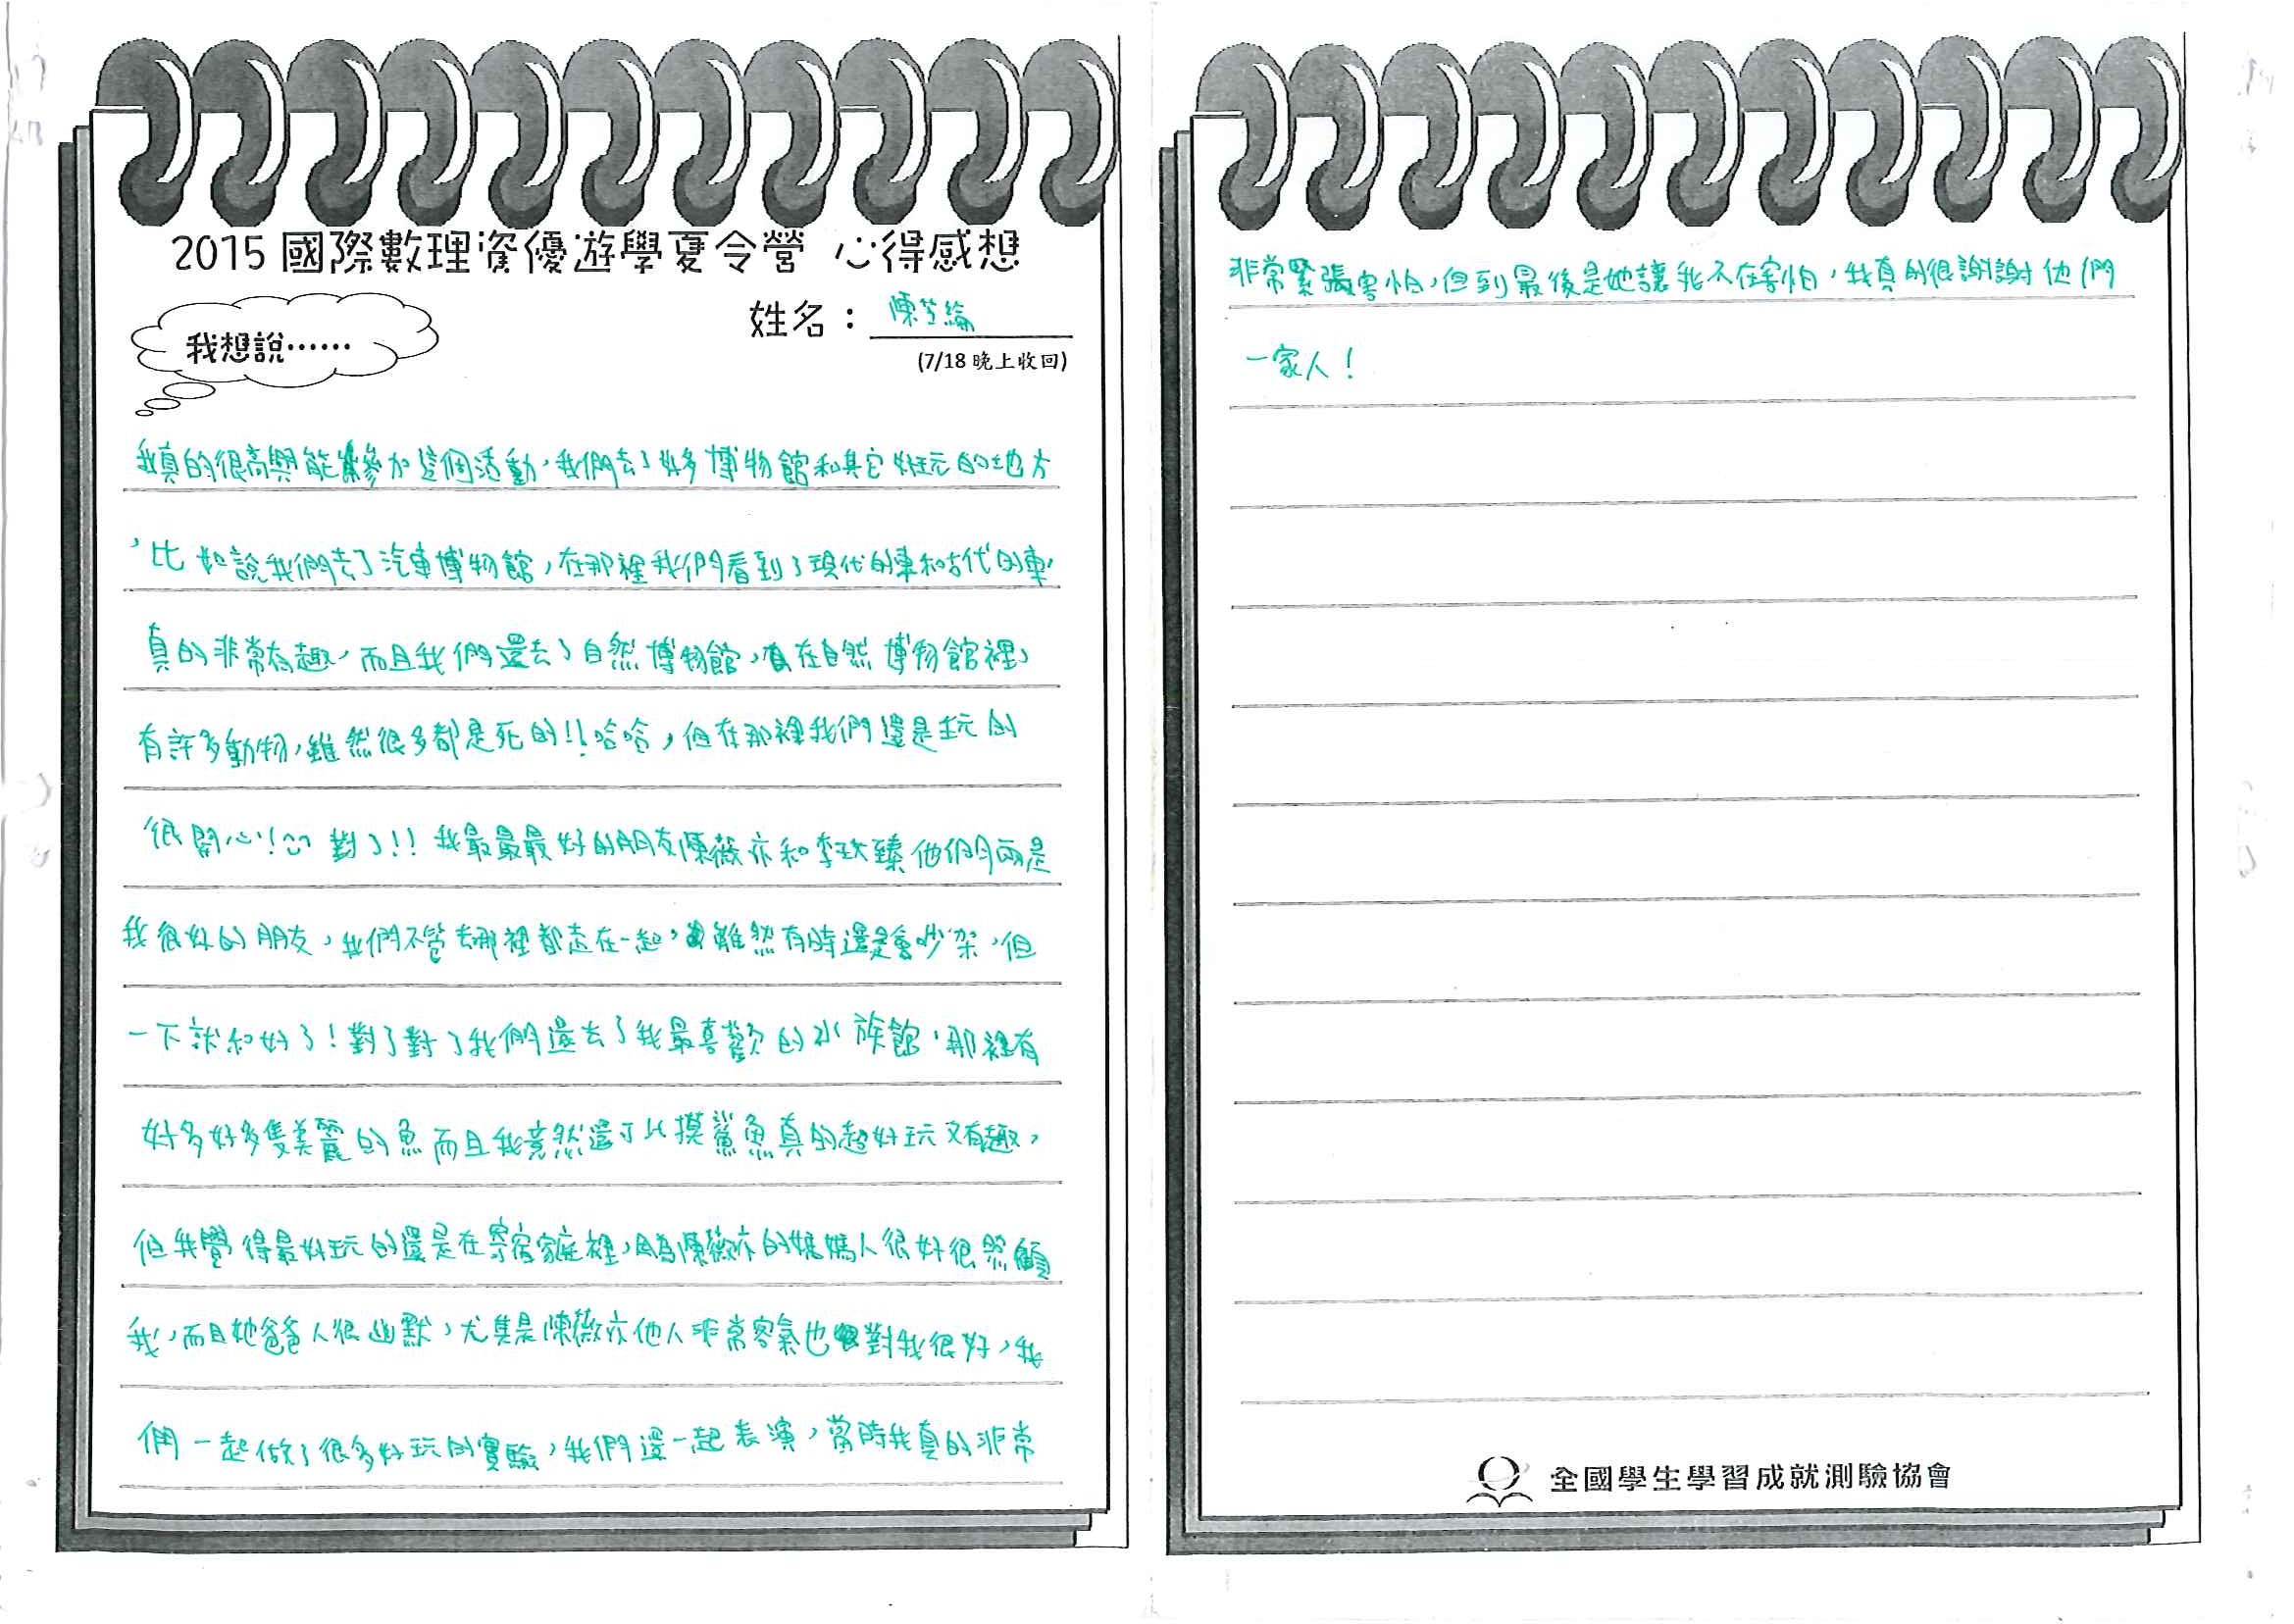 2015國際數理資優遊學夏令營 心得感想
我想說……
姓名：陳苙綸
(7/18 晚上收回)
我真的很高興能參加這個活動，我們去了好多博物館和其它好玩的地方
，比如說我們去了汽車博物館，在那裡我們看到了現代的車和古代的車，
真的非常有趣，而且我們還去了自然博物館，在自然博物館裡，
有許多動物，雖然很多都是死的!!哈哈，但在那裡我們還是玩的
很開心! 對了!! 我最最最好的朋友陳薇亦和李玟臻他們兩是
我很好的朋友，我們不管去哪裡都走在一起，雖然有時還是會吵架，但
一下就和好了!對了對了我們還去了我最喜歡的水族館，那裡有
好多好多隻美麗的魚而且我竟然還可以摸鯊魚真的超好玩又有趣，
但我覺得最好玩的還是在寄宿家庭裡，因為陳薇亦的媽媽人很好很照顧
我，而且她爸爸人很幽默，尤其是陳薇亦他人非常客氣也對我很好，我
們一起做了很多好玩的實驗，我們還一起表演，當時我真的非常
非常緊張害怕，但到最後是她讓我不在害怕，我真的很謝謝他們
一家人!
全國學生學習成就測驗協會